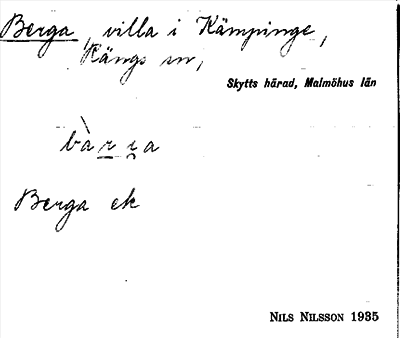 Berga, villa i Kämpinge,
Kängs sn,
Skytts härad, Malmöhus län
bàrɪa
Berga ek
NILS NILSSON 1935